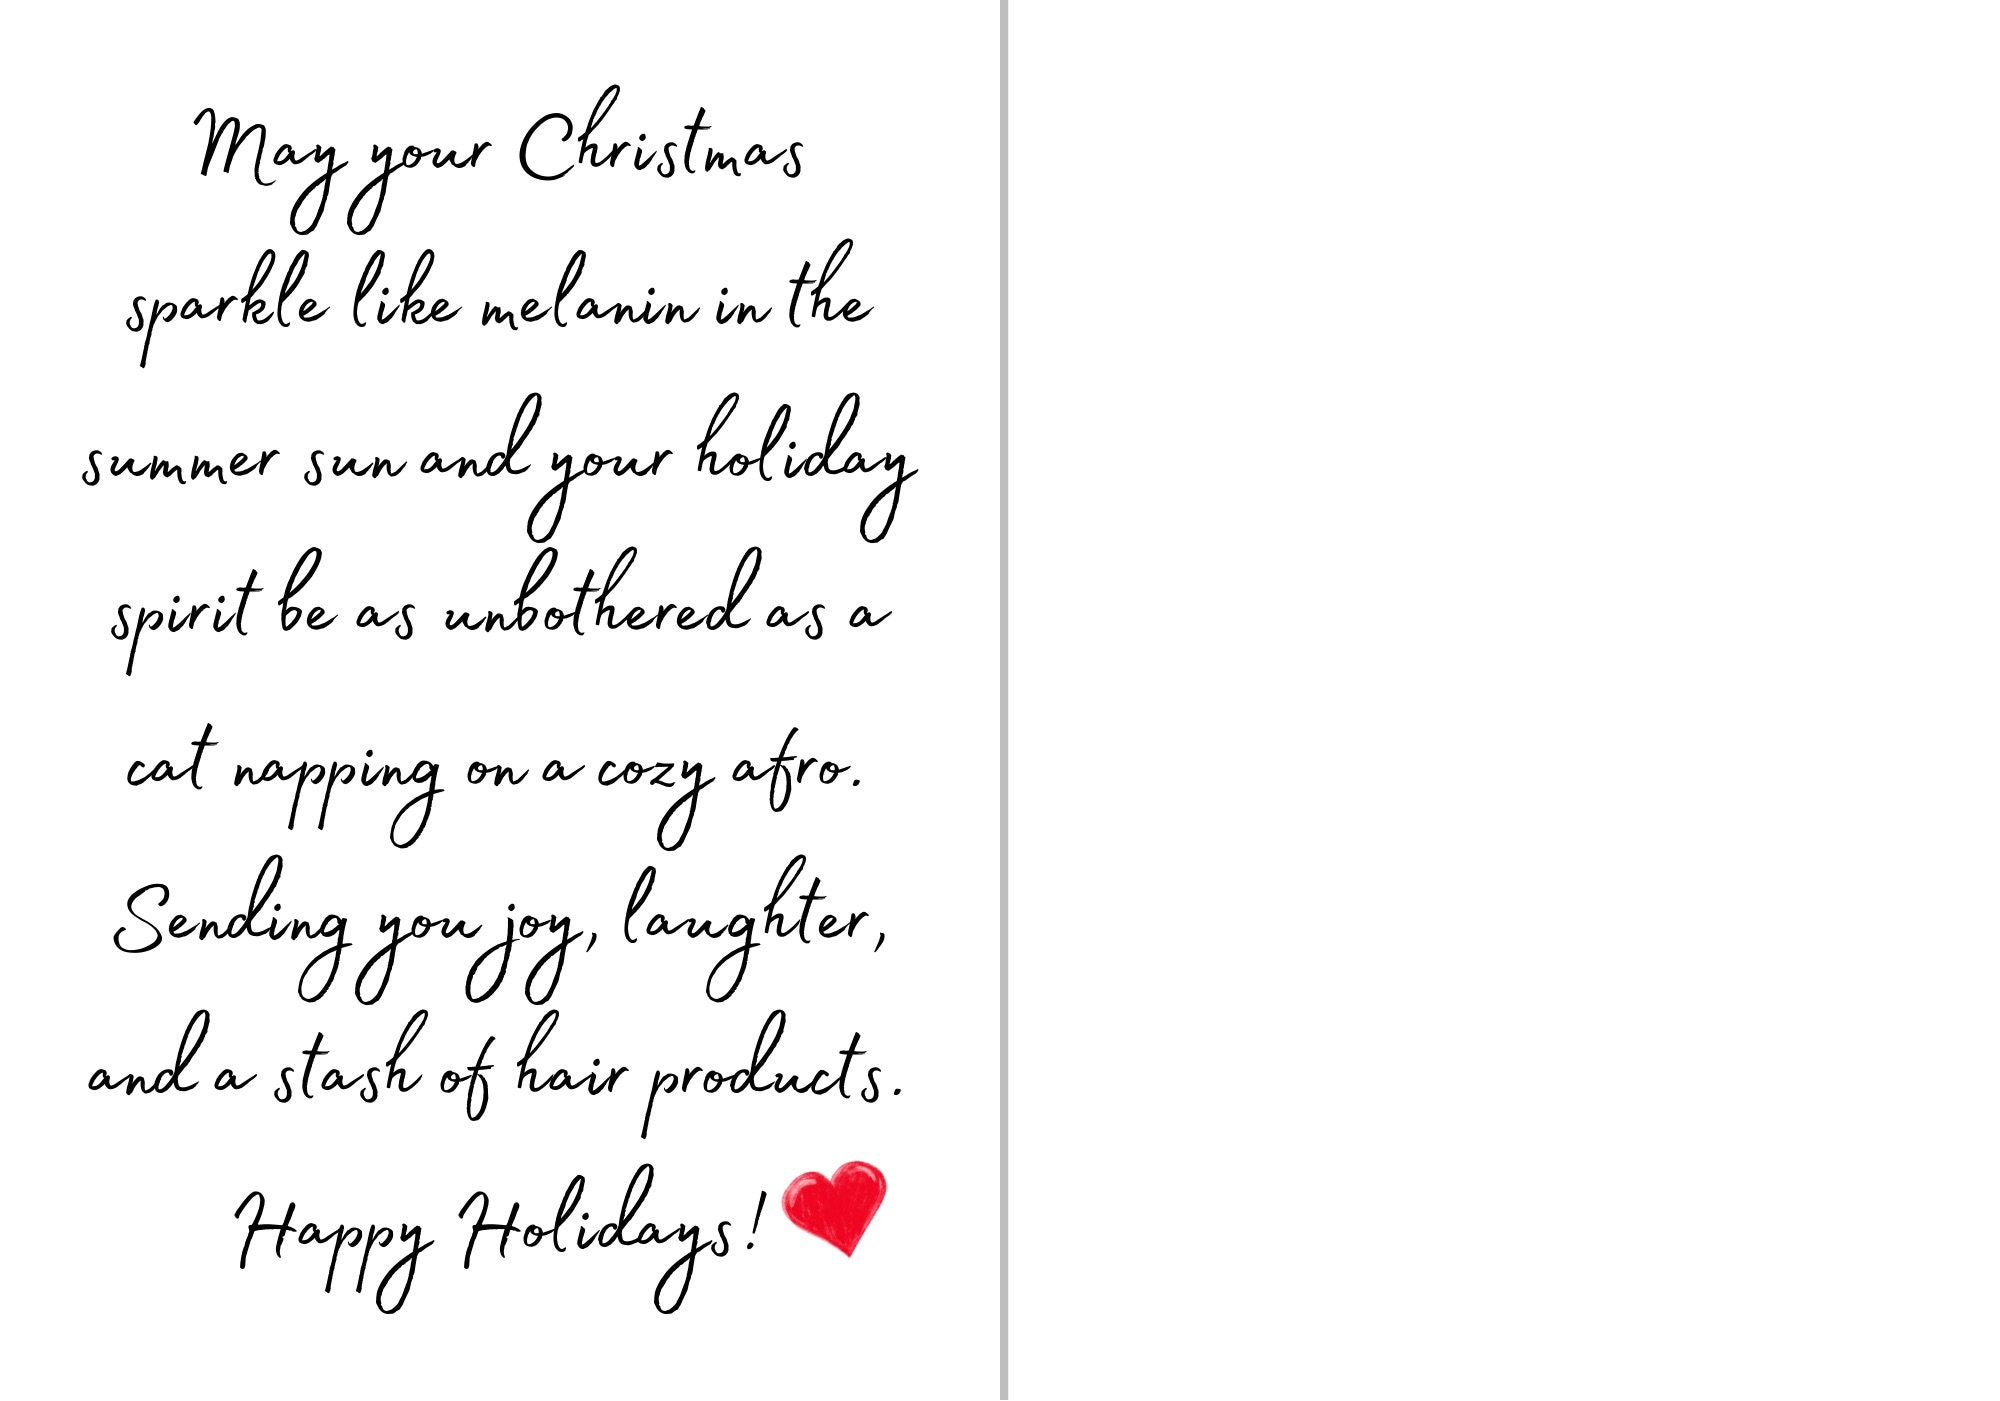 May your Christmas
sparkle like melanin in the
summer sun and your holiday
spirit be as unbothered as a
cat napping on a cozy afro.
Sending you joy, laughter,
and a stash of hair products.
Happy Holidays!